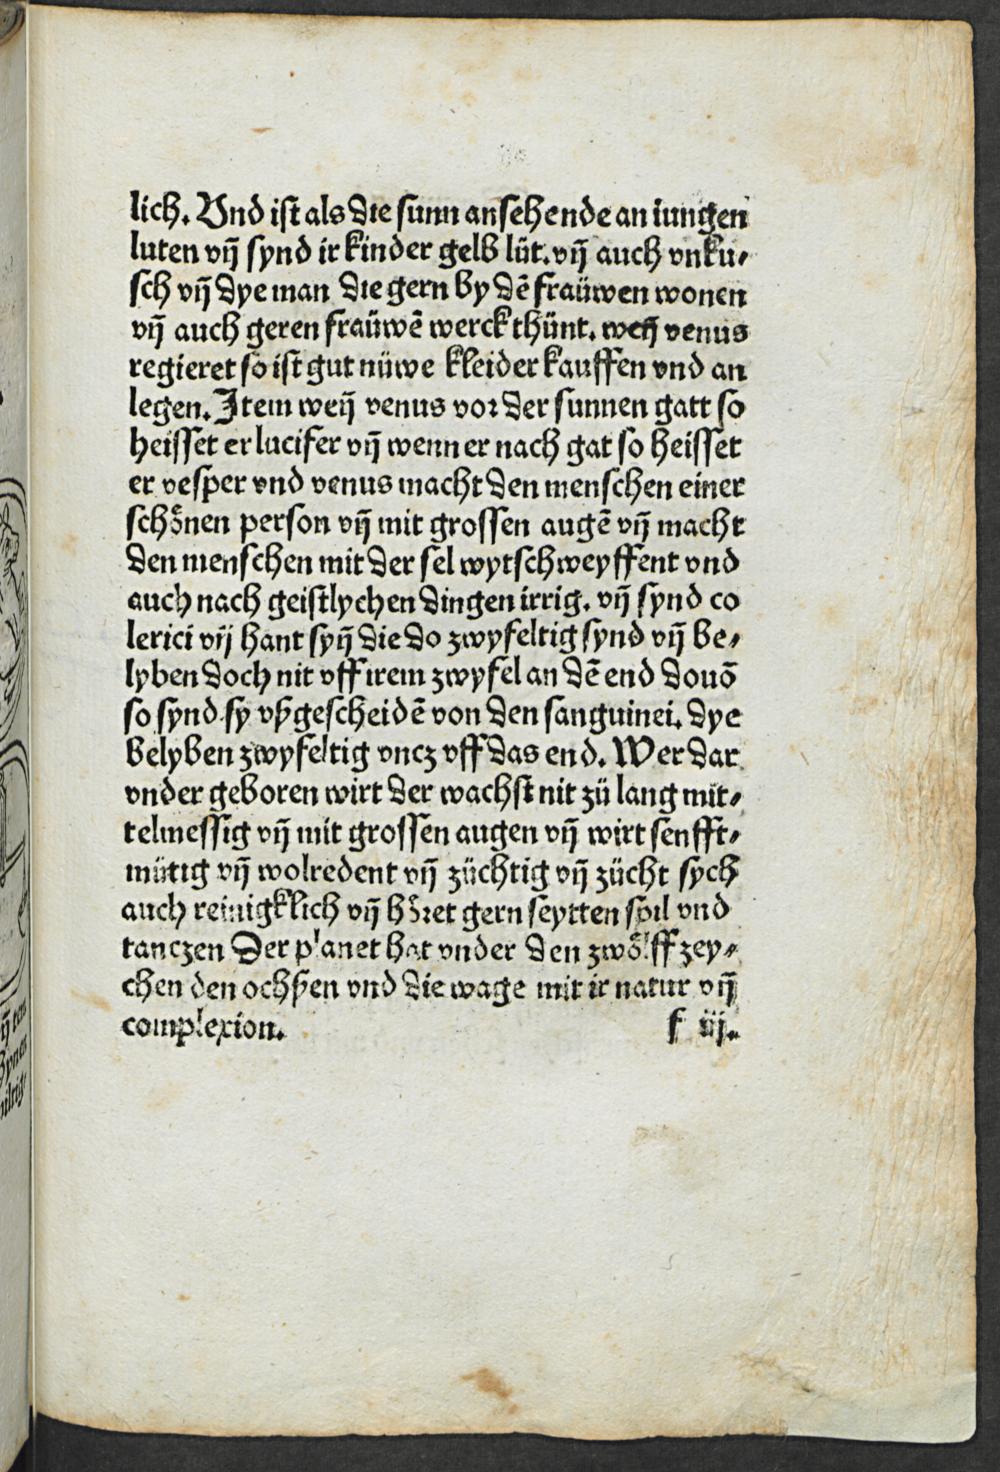 lich. Vnd ist als die sunn ansehende an iungen
luten vn̄ synd ir kinder gelb lüt. vn̄ auch vnku⸗
sch vn̄ dye man die gern by dē fraüwen wonen
vn̄ auch geren fraüwē werck thünt. wen̄ venus
regieret so ist gut nüwe kleider kauffen vnd an
legen. Item wen̄ venus vor der sunnen gatt so
heisset er lucifer vn̄ wenn er nach gat so heisset
er vesper vnd venus macht den menschen einer
schoͤnen person vn̄ mit grossen augē vn̄ macht
den menschen mit der sel wytschweyffent vnd
auch nach geistlychen dingen irrig. vn̄ synd co
lerici vn̄ hant syn̄ die do zwyfeltig synd vn̄ be⸗
lyben doch nit vff irem zwyfel an dē end douō
so synd sy vßgescheidē von den sanguinei. dye
belyben zwyfeltig vncz vff das end. Wer dar
vnder geboren wirt der wachst nit zü lang mit⸗
telmessig vn̄ mit grossen augen vn̄ wirt senfft⸗
mütig vn̄ wolredent vn̄ züchtig vn̄ zücht sych
auch reinigklich vn̄ hoͤret gern seytten spil vnd
tanczen Der planet hat vnder den zwoͤlff zey⸗
chen den ochßen vnd die wage mit ir natur vn̄
complexion. f iij.